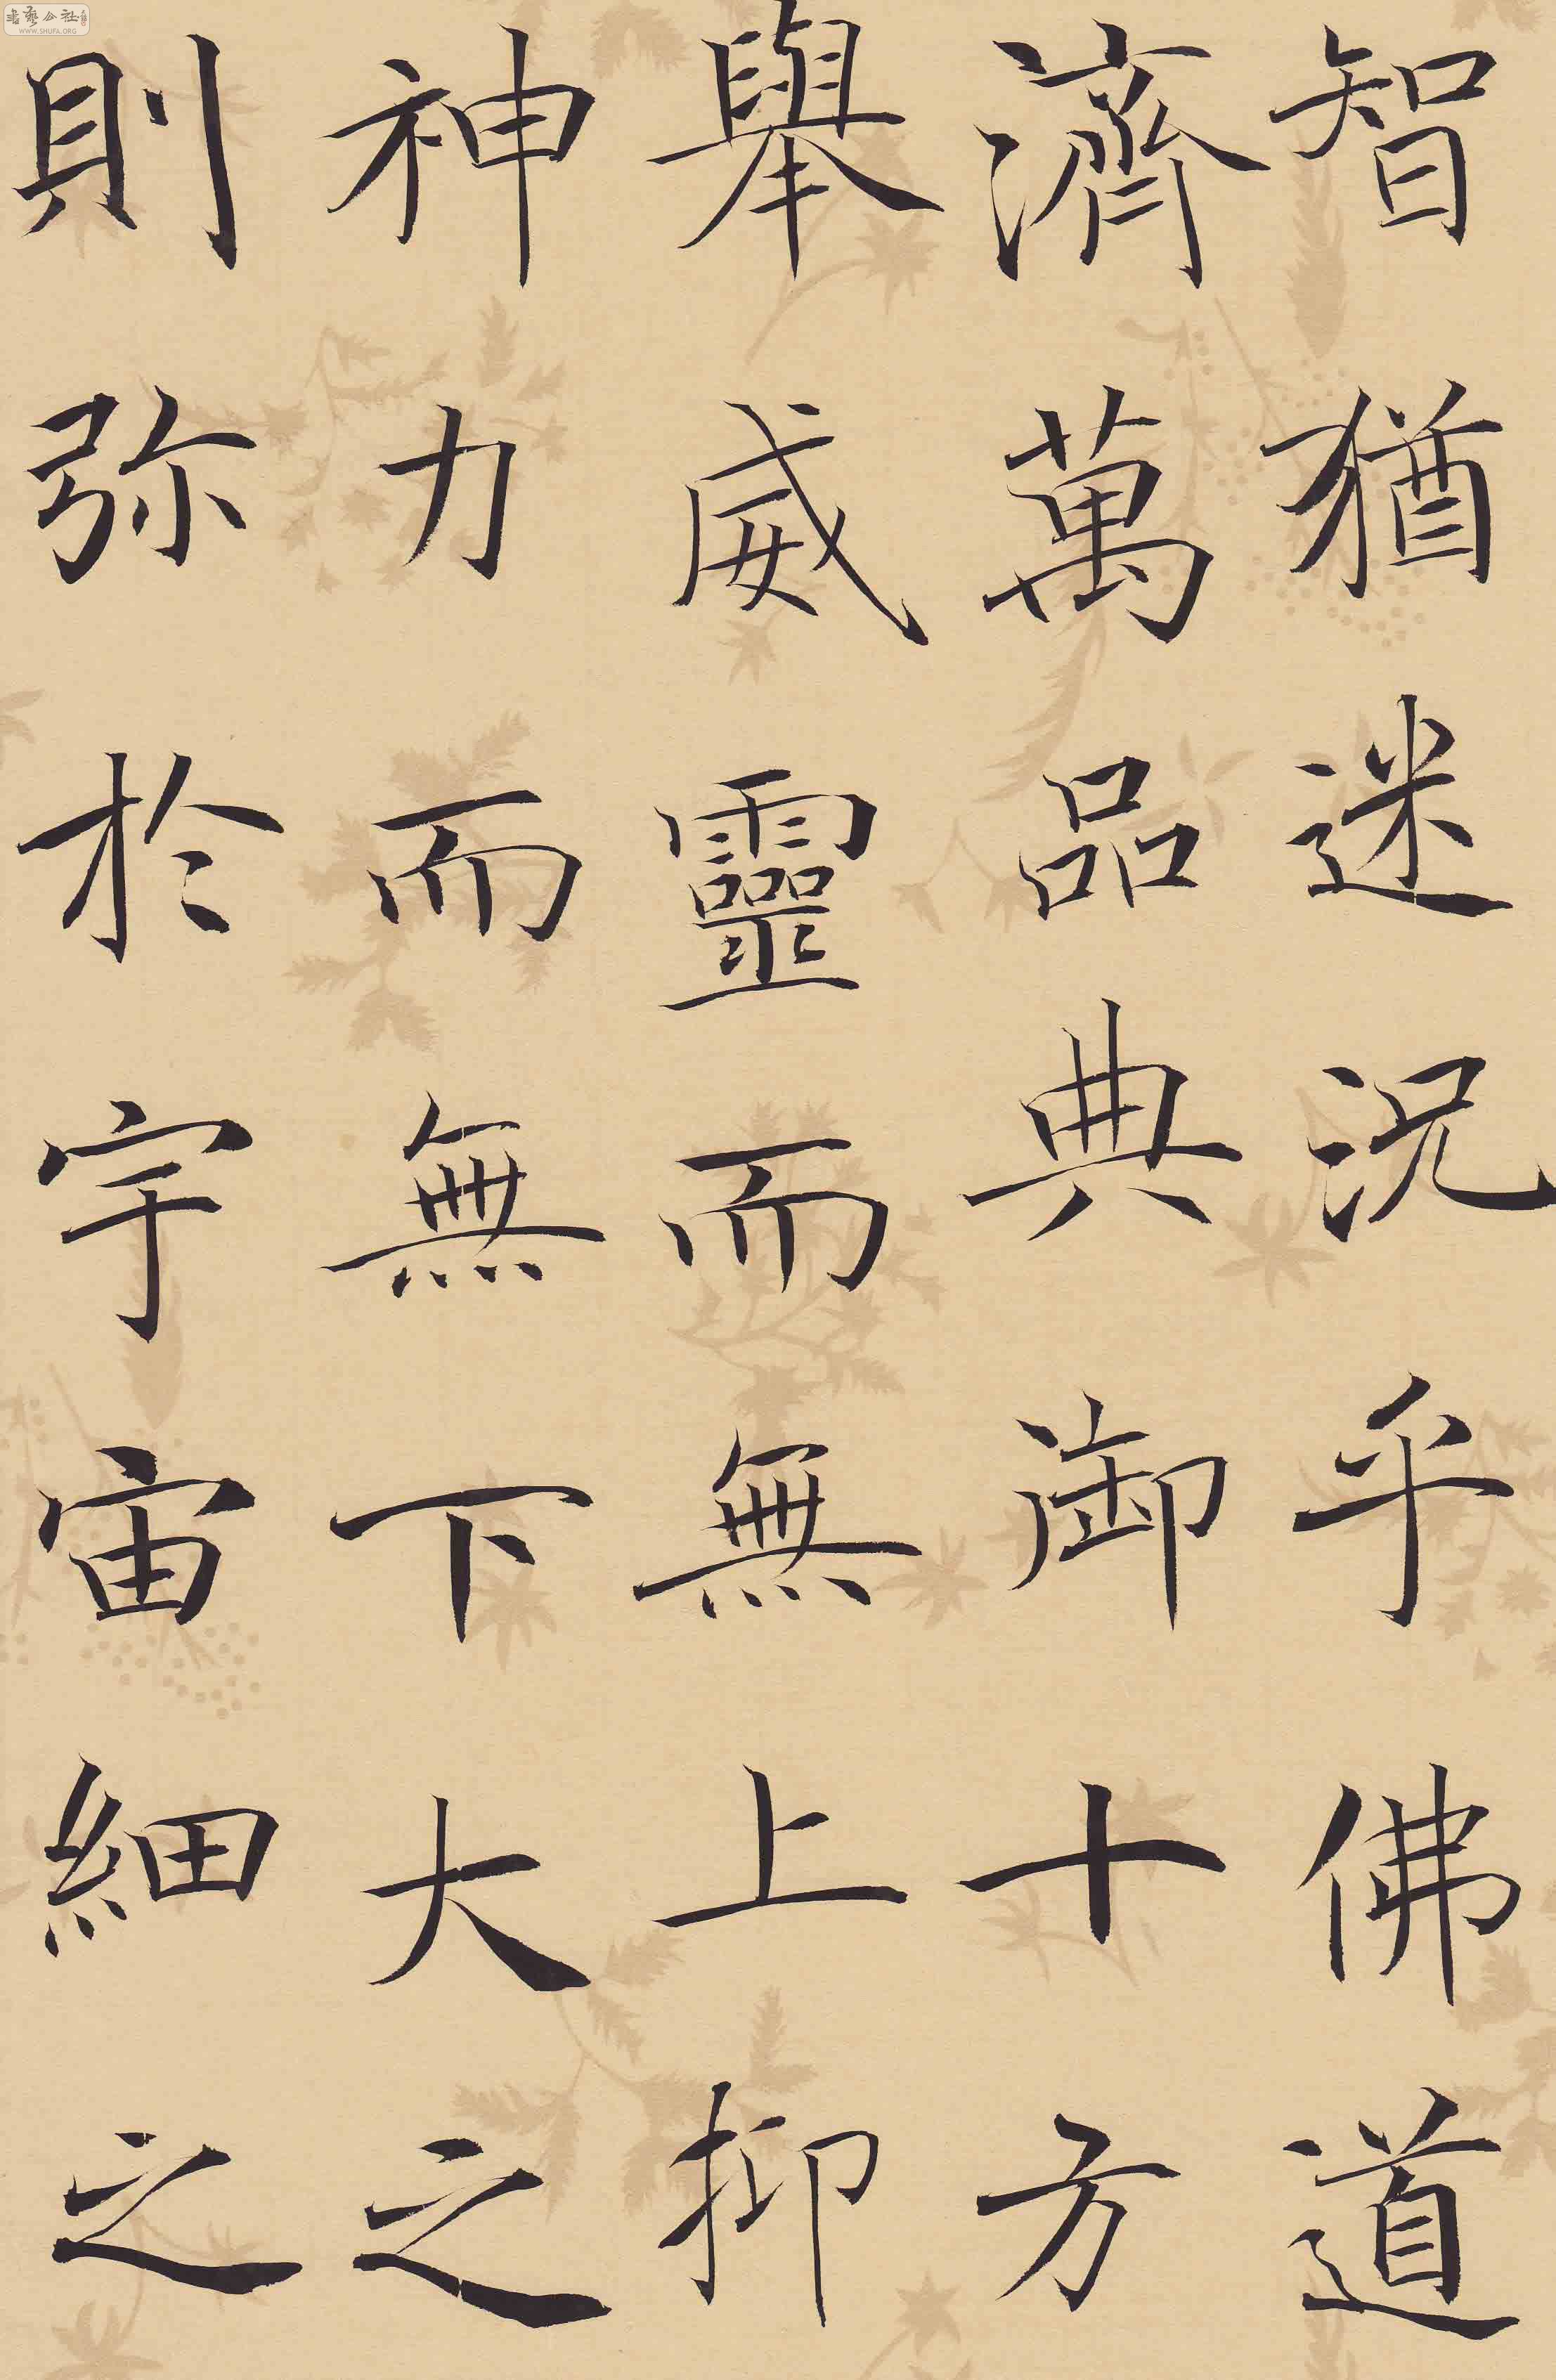 智猶迷況乎佛道
濟萬品典御十方
舉威靈而無上抑
神力而無下大之
則弥於宇宙細之
WWW.SHUFA.ORG